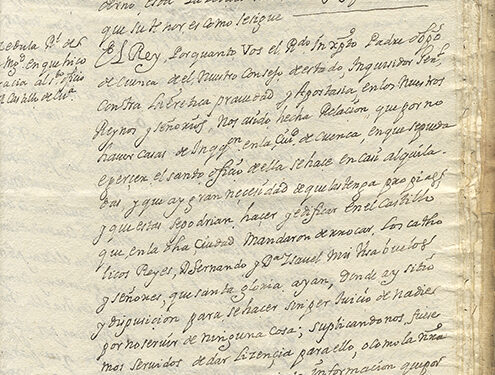 que su thenor es como se sigue
Cedula Rl. de
Mgd. en que hizo
gracia al sto. ofiº
el Castillo de Cuª
El Rey, Por quanto Vos el Rdo In xpto Padre obpo
de Cuenca del Nuestro Consejo de estado, Inquisidor Genl
Contra La heretica pravedad y Apostasia, en los Nuestros
Reynos y señorios, Nos aveis hecha Relacion que por no
haver Casas de Inqqon en la Ciud de Cuenca, en que se pueda
exercer el santo oficio de ella se hace en Casa alquila-
das, y que ay gran necesidad de que las tenga propias
y que estas se podrian hacer y edificar en el Castillo
que en la dha Ciudad Mandaron derrocar, Los catho
licos Reyes, D. Fernando y Dª Isavel Mis Visabuelos
y señores, que santa gloria ayan, Donde ay sitio
y disposicion para se hacer sin per Juicio de nadie
por no servir de ninguna Cosa; suplicandonos fuese
mos servidos de dar Lizencia para ello, o como la nra
Informacion que por